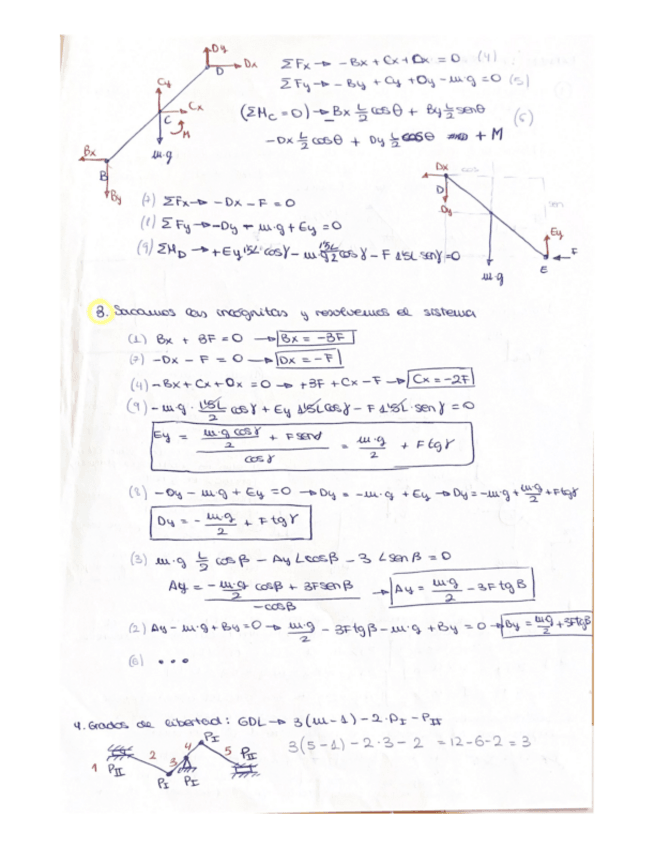 Dy
Dx
D
Cy
Cx
C
M
m·g
Bx
B
By
ΣFx → -Bx + Cx + Dx = 0 (4)
ΣFy → -By + Cy + Dy - m·g = 0 (5)
(ΣMc = 0) → Bx L/2 cosθ + By L/2 senθ
-Dx L/2 cosθ + Dy L/2 cosθ = + M (6)
(7) ΣFx → -Dx - F = 0
(8) ΣFy → -Dy - m·g + Ey = 0
(9) ΣM_D → + Ey 1'5L cosγ - m·g 1'5L/2 cosγ - F 1'5L senγ = 0
Dx
cos
D
Dy
sen
Ey
F
E
m·g
3. Sacamos las incógnitas y resolvemos el sistema
(1) Bx + 3F = 0 → Bx = -3F
(7) -Dx - F = 0 → Dx = -F
(4) -Bx + Cx + Dx = 0 → +3F + Cx - F → Cx = -2F
(9) -m·g · 1'5L/2 cosγ + Ey 1'5L cosγ - F 1'5L · senγ = 0
Ey = (m·g cosγ/2 + F senγ)/cosγ = m·g/2 + F tgγ
(8) -Dy - m·g + Ey = 0 → Dy = -m·g + Ey → Dy = -m·g + m·g/2 + F tgγ
Dy = - m·g/2 + F tgγ
(3) m·g L/2 cosβ - Ay L cosβ - 3 L senβ = 0
Ay = (-m·g/2 cosβ + 3F senβ)/-cosβ → Ay = m·g/2 - 3F tgβ
(2) Ay - m·g + By = 0 → m·g/2 - 3F tgβ - m·g + By = 0 → By = m·g/2 + 3F tgβ
(6) •••
4. Grados de libertad: GDL → 3(m-1) - 2·P_I - P_II
3(5-1) - 2·3 - 2 = 12-6-2 = 3
1
P_II
2
P_I
3
P_I
4
P_I
5
P_II